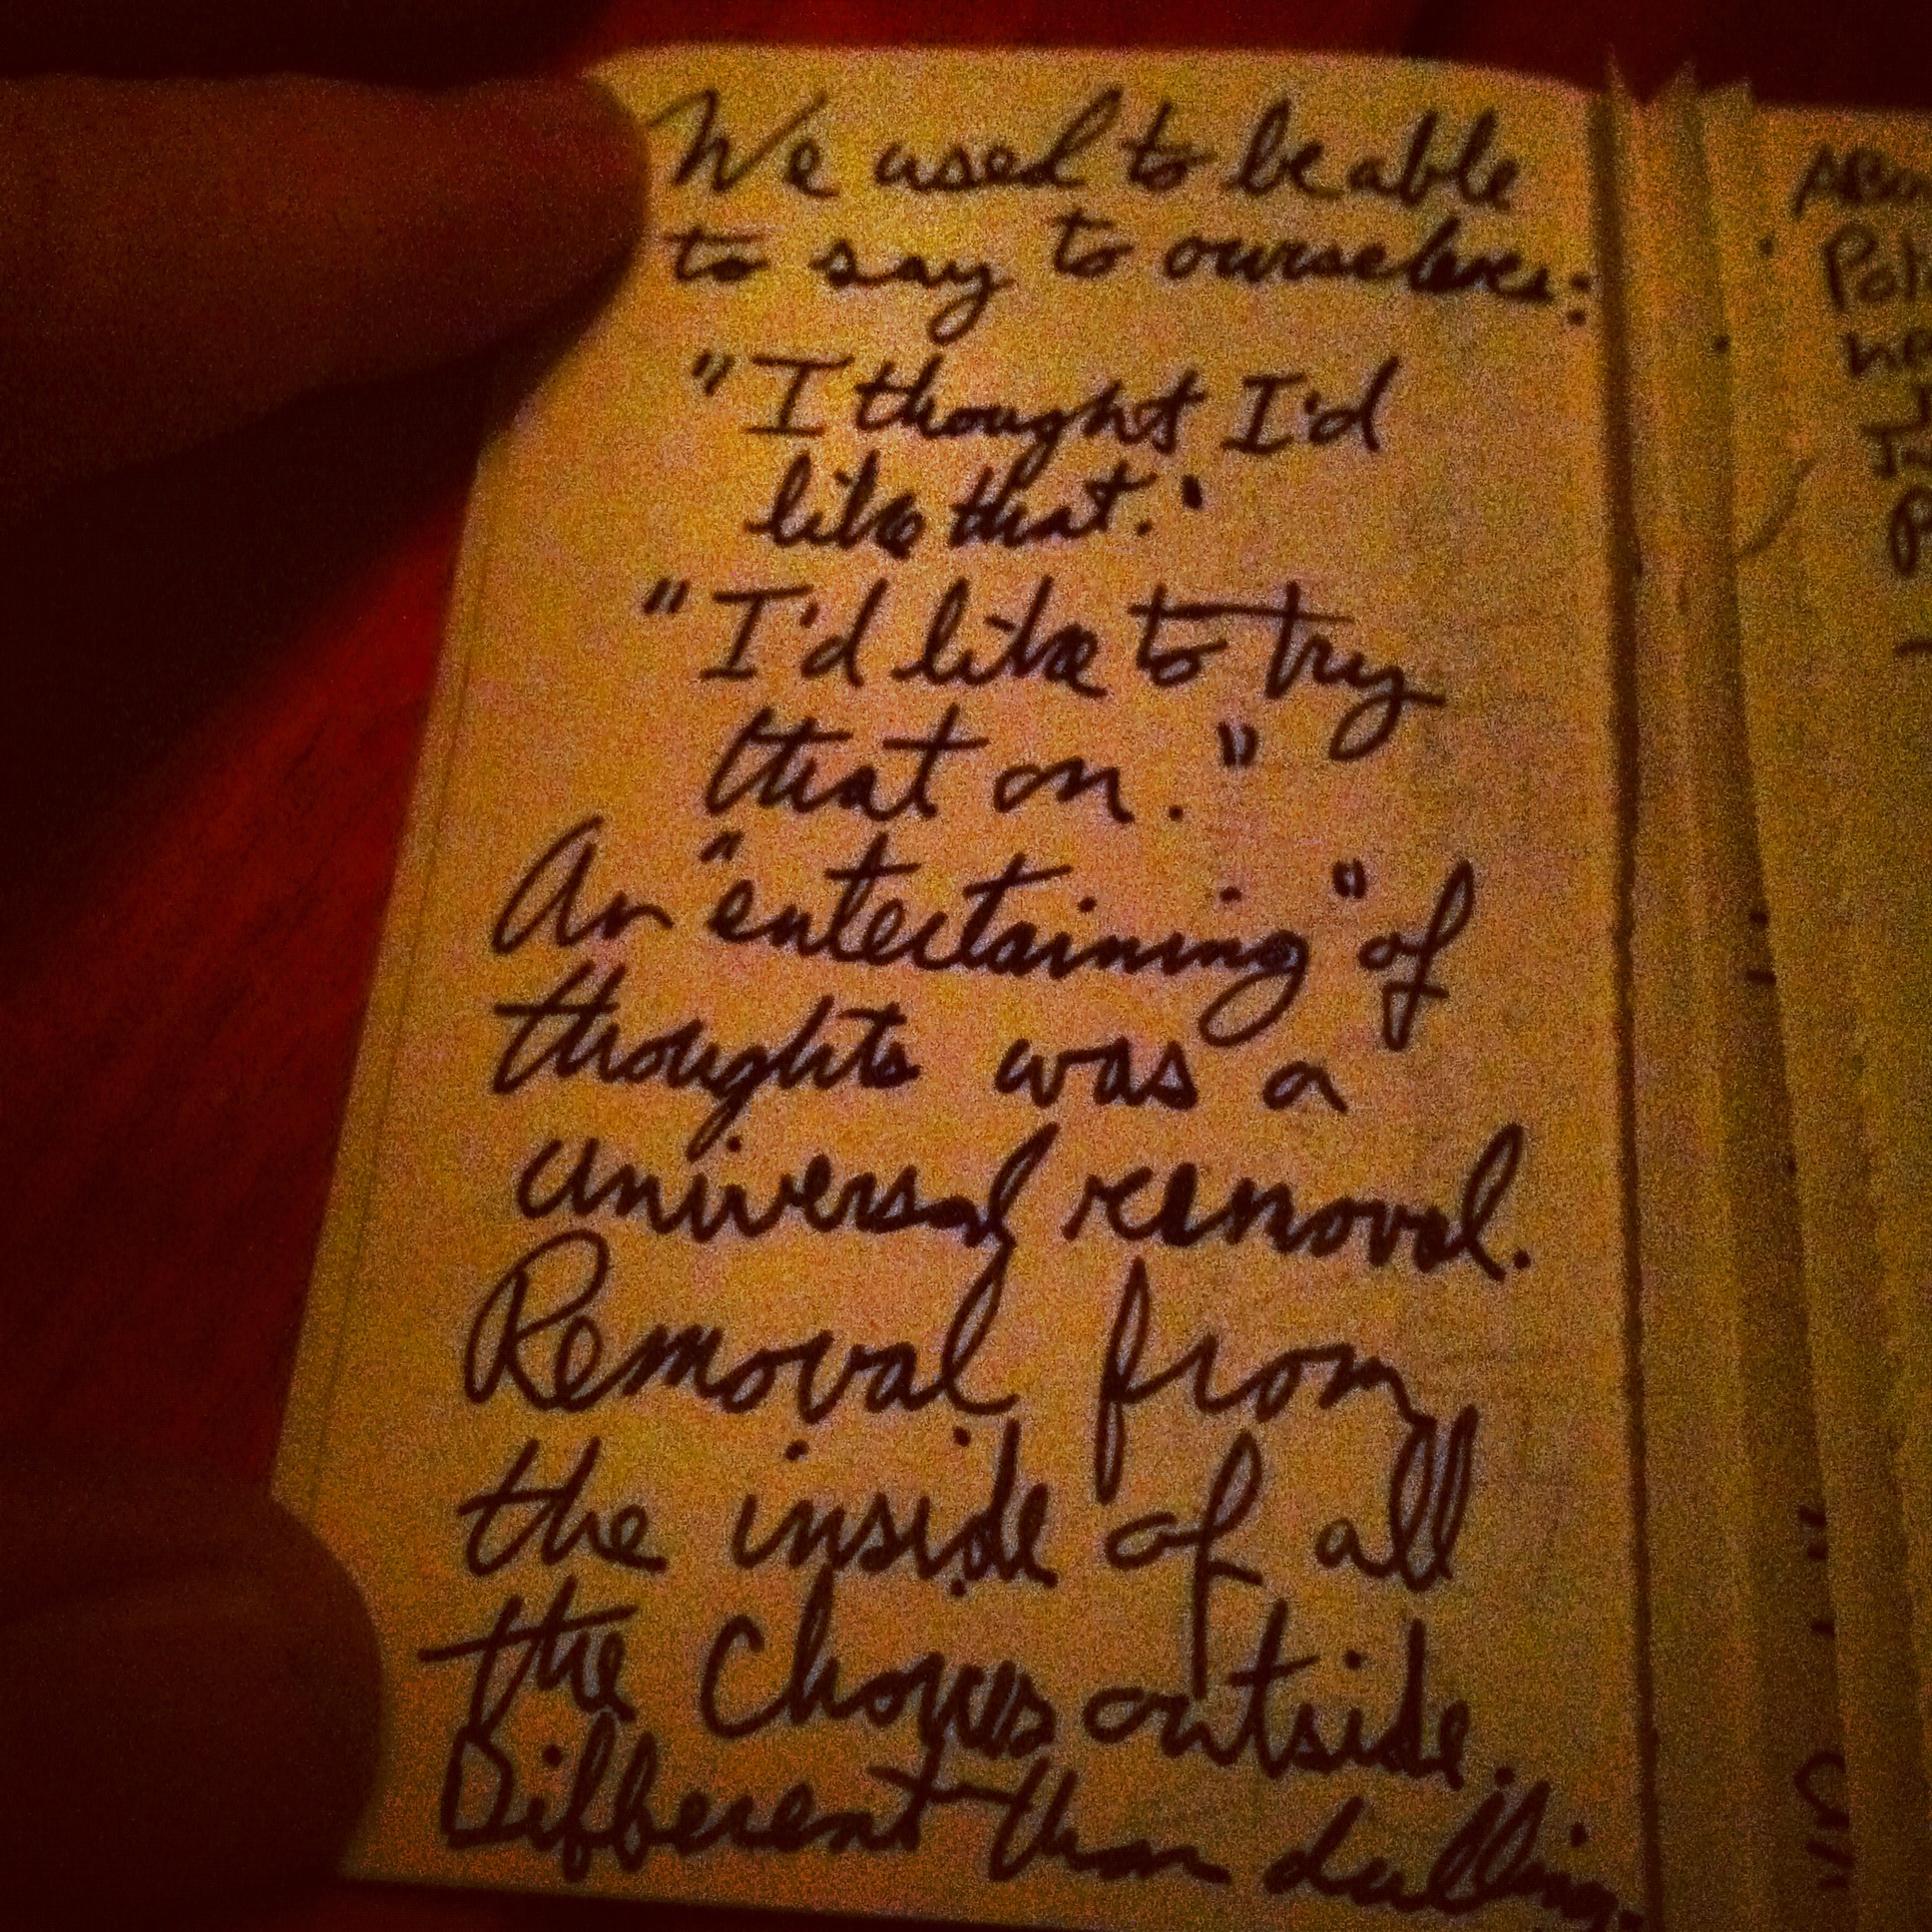 We used to be able
to say to ourselves:
"I thought I'd
like that."
"I'd like to try
that on."
An "entertaining" of
thoughts was a
universal removal.
Removal from
the inside of all
the Choices outside.
Different than dulling.